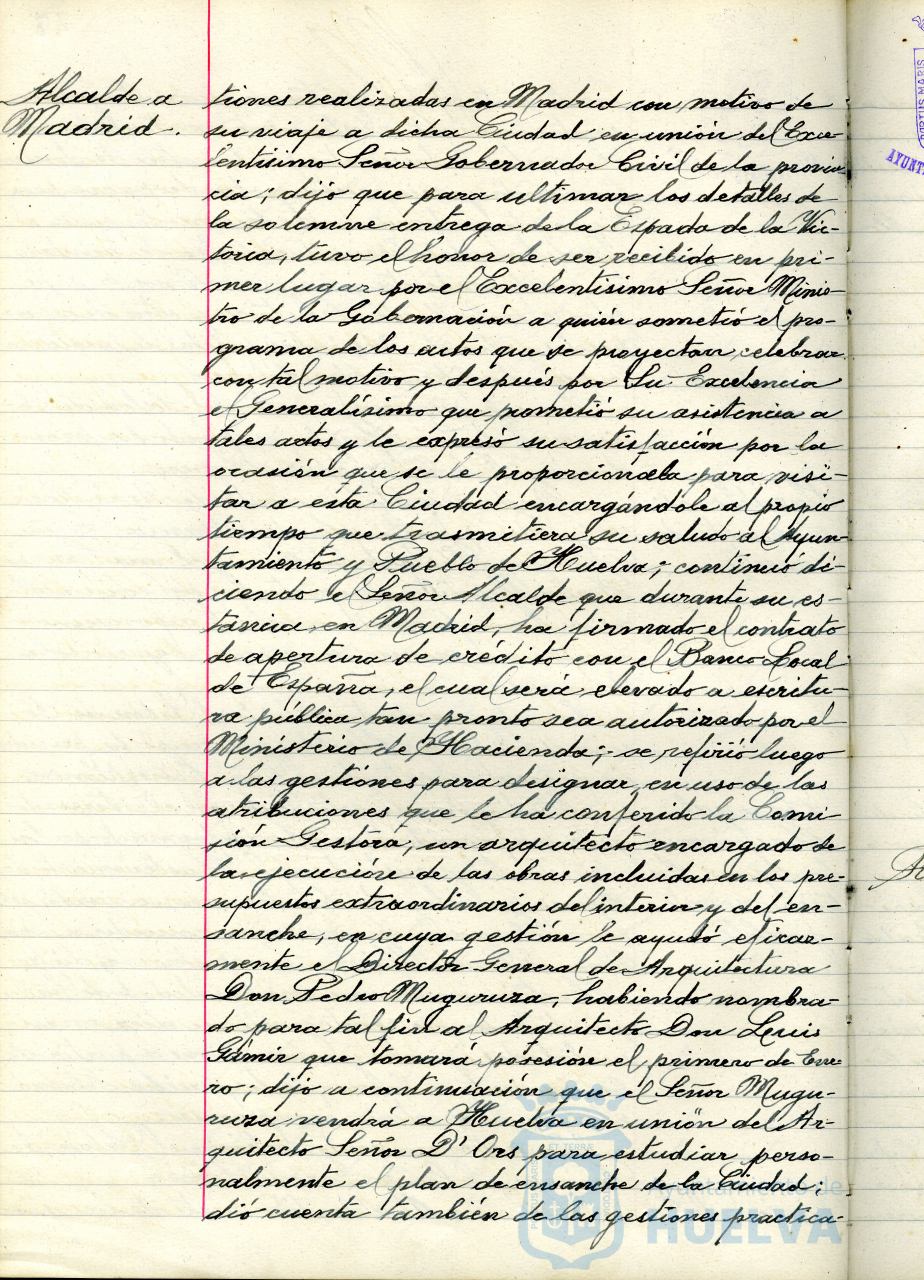 Alcalde a
Madrid.
tiones realizadas en Madrid con motivo de
su viaje a dicha Ciudad en unión del Exce-
lentisimo Señor Gobernador Civil de la provin-
cia; dijo que para ultimar los detalles de
la solemne entrega de la Espada de la Vic-
toria, tuvo el honor de ser recibido en pri-
mer lugar por el Excelentisimo Señor Minis-
tro de la Gobernación a quién sometió el pro-
grama de los actos que se proyectan celebrar
con tal motivo y después por Su Excelencia
el Generalísimo que prometió su asistencia a
tales actos y le expresó su satisfacción por la
ocasión que se le proporcionaba para visi-
tar a esta Ciudad encargándole al propio
tiempo que trasmitiera su saludo al Ayun-
tamiento y Pueblo de Huelva; continuó di-
ciendo el Señor Alcalde que durante su es-
táncia en Madrid, ha firmado el contrato
de apertura de crédito con el Banco Local
de España, el cual será elevado a escritu-
ra pública tan pronto sea autorizado por el
Ministerio de Hacienda; se refirió luego
a las gestiónes para designar, en uso de las
atribuciones que le ha conferido la Comi-
sión Gestora, un arquitecto encargado de
la ejecución de las obras incluidas en los pre-
supuestos extraordinarios del interior y del en-
sanche, en cuya gestión le ayudó eficaz-
mente el Director General de Arquitectura
Don Pedro Muguruza, habiendo nombra-
do para tal fin al Arquitecto Don Luis
Gámir que tomará posesión el primero de Ene-
ro; dijo a continuación que el Señor Mugu-
ruza vendrá a Huelva en unión del Ar-
quitecto Señor D' Ors para estudiar perso-
nalmente el plan de ensanche de la Ciudad;
dió cuenta también de las gestiones practica-
Ayuntamiento de
HUELVA